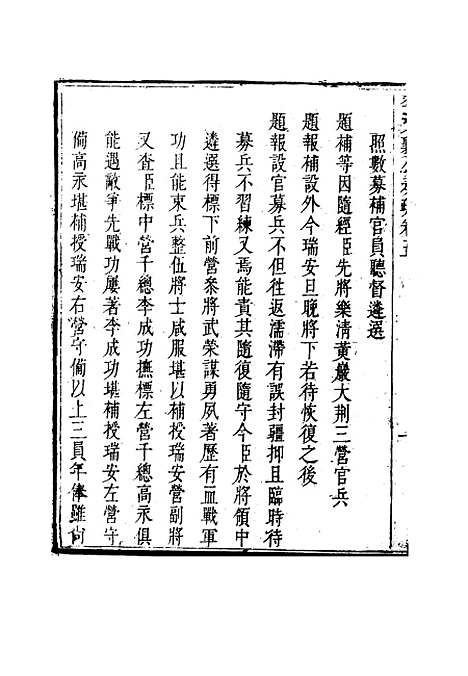 照數募補官員聽督遴選
題補等因隨經臣先將樂清黃巖大荆三營官兵
題報補設外今瑞安旦晚將下若待恢復之後
題報設官募兵不但往返濡滯有誤封疆抑且臨時待
募兵不習練又焉能責其隨復隨守今臣於將領中
遴選得標下前營叅將武榮謀勇夙著歷有血戰軍
功且能束兵整伍將士咸服堪以補授瑞安營副將
又查臣標中營千總李成功撫標左營千總高永俱
能遇敵爭先戰功屢著李成功堪補授瑞安左營守
俻高永堪補授瑞安右營守俻以上三員年俸雖尚